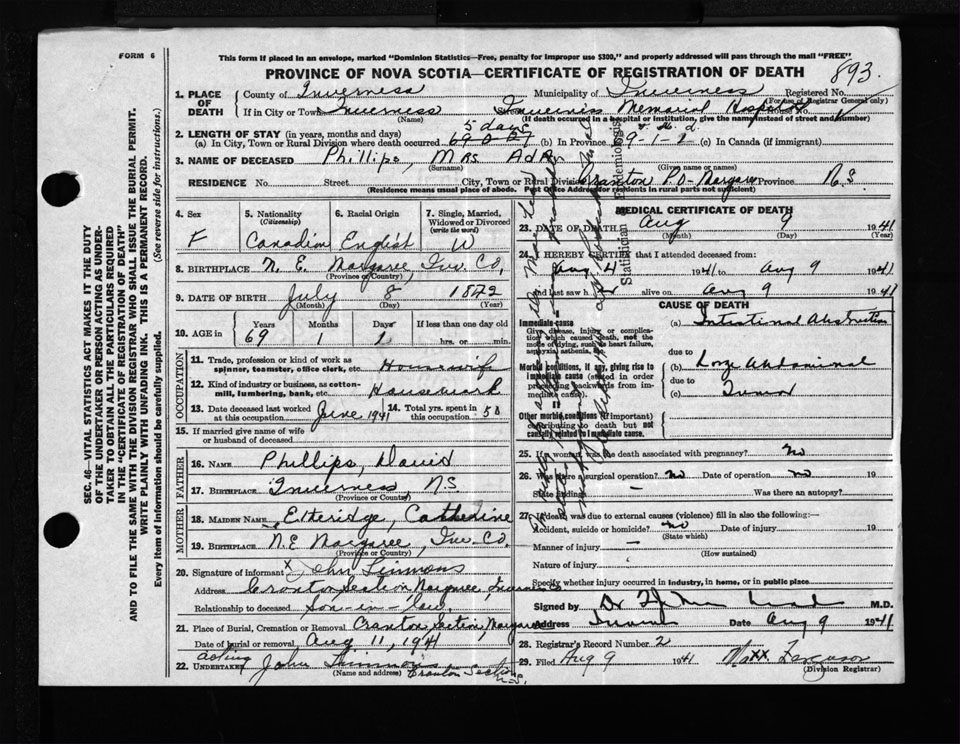 FORM 6
This form if placed in an envelope, marked "Dominion Statistics—Free, penalty for improper use $300," and properly addressed will pass through the mail "FREE"
PROVINCE OF NOVA SCOTIA—CERTIFICATE OF REGISTRATION OF DEATH
893
1. PLACE OF DEATH
County of Inverness Municipality of Inverness Registered No.
(For use of Registrar General only)
If in City or Town Inverness Inverness Memorial Hospital
(Name) (If death occurred in a hospital or institution, give the name instead of street and number)
2. LENGTH OF STAY (in years, months and days)
5 days
(a) In City, Town or Rural Division where death occurred (b) In Province 69-1-1 (c) In Canada (if immigrant)
3. NAME OF DECEASED Phillips, Mrs
(Surname) (Given name or names)
RESIDENCE No. Street City, Town or Rural Division P.O. Margaree Province N.S.
(Residence means usual place of abode. Post Office Address for residents in rural parts not sufficient)
4. Sex F
5. Nationality (Citizenship) Canadian
6. Racial Origin English
7. Single, Married, Widowed or Divorced (write the word) W
8. BIRTHPLACE N. E. Margaree, Inv. Co,
(Province or Country)
9. DATE OF BIRTH July 8 1872
(Month) (Day) (Year)
10. AGE in Years Months Days If less than one day old
69 1 1 hrs. or min.
OCCUPATION
11. Trade, profession or kind of work as spinner, teamster, office clerk, etc. Housewife
12. Kind of industry or business, as cotton-mill, lumbering, bank, etc. Housework
13. Date deceased last worked at this occupation June 1941 14. Total yrs. spent in this occupation 50
15. If married give name of wife or husband of deceased
FATHER
16. NAME Phillips, David
17. BIRTHPLACE Inverness, N.S.
(Province or Country)
MOTHER
18. MAIDEN NAME Etteridge, Catherine
19. BIRTHPLACE N.E Margaree, Inv. Co.
(Province or Country)
20. Signature of informant x John Timmons
Address Section Margaree, Inverness
Relationship to deceased son-in-law,
21. Place of Burial, Cremation or Removal Cranton Section, Margaree
Date of burial or removal Aug 11, 1941
22. acting UNDERTAKER John Timmons
(Name and address) Cranton Section N.S.
MEDICAL CERTIFICATE OF DEATH
23. DATE OF DEATH Aug 9 1941
(Month) (Day) (Year)
24. I HEREBY CERTIFY that I attended deceased from:
Aug 4 1941 to Aug 9 1941
and last saw h alive on Aug 9 1941
CAUSE OF DEATH
Immediate cause
Give disease, injury or complication which caused death, not the mode of dying, such as heart failure, asphyxia, asthenia, etc.
(a) Intestinal Obstruction
due to
Morbid conditions, if any, giving rise to immediate cause (stated in order proceeding backwards from immediate cause).
(b) Large Abdominal
due to
(c) Tumor
II
Other morbid conditions (if important) contributing to death but not causally related to immediate cause.
25. If a woman, was the death associated with pregnancy? No
26. Was there a surgical operation? No Date of operation No 19
State findings — Was there an autopsy?
27. If death was due to external causes (violence) fill in also the following:—
Accident, suicide or homicide? No Date of injury 19
(State which)
Manner of injury —
(How sustained)
Nature of injury —
Specify whether injury occurred in industry, in home, or in public place
Signed by Dr M.D.
Address Date Aug 9 1941
28. Registrar's Record Number 2
29. Filed Aug 9 1941 Ferguson
(Division Registrar)
Statistician
Epidemiologist
SEC. 46—VITAL STATISTICS ACT MAKES IT THE DUTY OF THE UNDERTAKER OR PERSON ACTING AS UNDERTAKER TO OBTAIN ALL THE PARTICULARS REQUIRED IN THE "CERTIFICATE OF REGISTRATION OF DEATH" AND TO FILE THE SAME WITH THE DIVISION REGISTRAR WHO SHALL ISSUE THE BURIAL PERMIT.
WRITE PLAINLY WITH UNFADING INK. THIS IS A PERMANENT RECORD.
Every item of information should be carefully supplied. (See reverse side for instructions.)